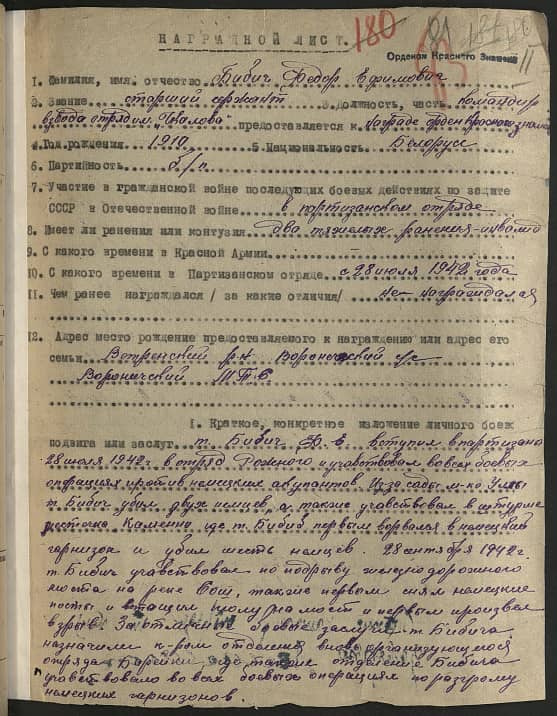 180
НАГРАДНОЙ ЛИСТ.
Орденом Красного Знамени
11
1. Фамилия, имя, отчество Бибич Федор Ефимович
2. Звание старший сержант 3. Должность, часть командир
взвода отряд им. предоставляется к награде орден Красного знамя
4. Год рождения 1910 5. Национальность Белорусс
6. Партийность б/п
7. Участие в гражданской войне последующих боевых действиях по защите
СССР в Отечественной войне в партизанском отряде
8. Имеет ли ранения или контузия два тяжелых ранения-инвалид
9. С какого времени в Красной Армии
10. С какого времени в Партизанском отряде с 28 июля 1942 года
11. Чем ранее награждался / за какие отличия/ не награждался
12. Адрес место рождение предоставляемого к награждению или адрес его
семьи Ветренский р-н Вороничский с/с
Вороничский
1. Краткое, конкретное изложение личного боев
подвига или заслуг т. Бибич Ф. Е вступил в партизаны
28 июля 1942 г. в отряд и учавствовал во всех боевых
операциях против немецких акупантов. Из засады м-ко Уллы
т. Бибич убил двух немцев, а также учавствовал в штурме
местечка Каменка, где т. Бибич первым ворвался в немецкий
гарнизон и убил шесть немцев. 28 сентября 1942 г.
т. Бибич учавствовал по подрыву железнодорожного
моста на реке также первым снял немецкие
посты и втащил тол на мост и первым произвел
взрыв. За отличные боевые заслуги т. Бибича
назначили к-ром отделения вновь организующегося
отряда где также отделение Бибича
учавствовало во всех боевых операциях по разгрому
немецких гарнизонов.